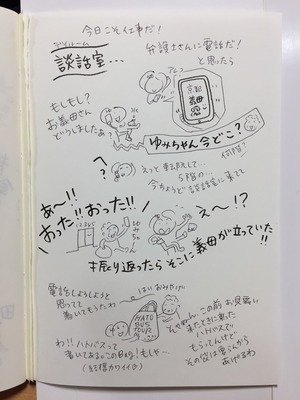 今日こそ仕事だ!
デイルーム
談話室…
弁護士さんに電話だ!
と思ったら
もしもし?
お義母さん
どうしましたぁ?
京都
義母
ゆみちゃん今どこ?
何階?
へ?
えっと 転院して…
5階の…
今ちょうど談話室に来て
あ〜!!
おった!!おった!!
ゆみちゃん
え〜!?
振り返ったら そこに義母が立っていた!!
電話しようしようと
思ってて
着いてもうたわ
はい おみやげ
HATO
BUS
TOUR
わ!! ハトバスって
書いてあるこのBAG! もしや…
(結構カワイイ)
そやねん、この前 お見舞い
来たときに乗った
ハトバスで
もらってんけど
その袋は要らんから
あげるわ